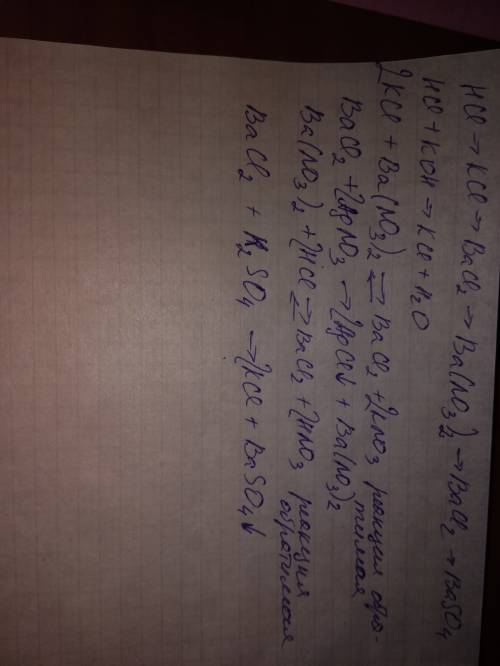 HCl → KCl → BaCl₂ → Ba(NO₃)₂ → BaCl₂ → BaSO₄
HCl + KOH → KCl + H₂O
2KCl + Ba(NO₃)₂ ⇄ BaCl₂ + 2KNO₃ реакция обра-
тимая
BaCl₂ + 2AgNO₃ → 2AgCl↓ + Ba(NO₃)₂
Ba(NO₃)₂ + 2HCl ⇄ BaCl₂ + 2HNO₃ реакция
обратимая
BaCl₂ + K₂SO₄ → 2KCl + BaSO₄↓